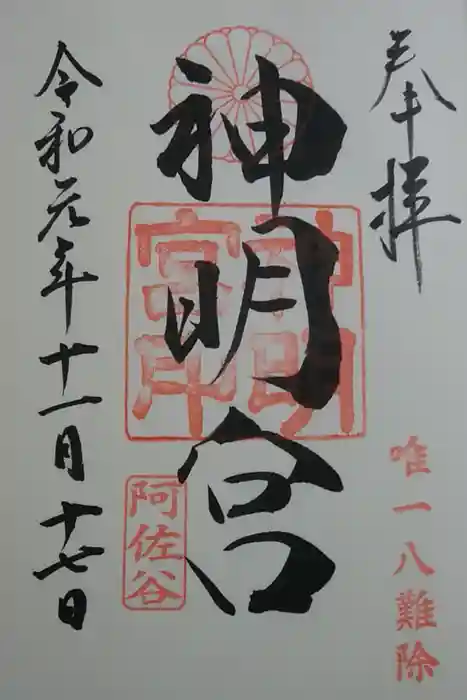 奉拝
唯一八難除
神明宮
神明
宮印
阿佐谷
令和元年十一月十七日